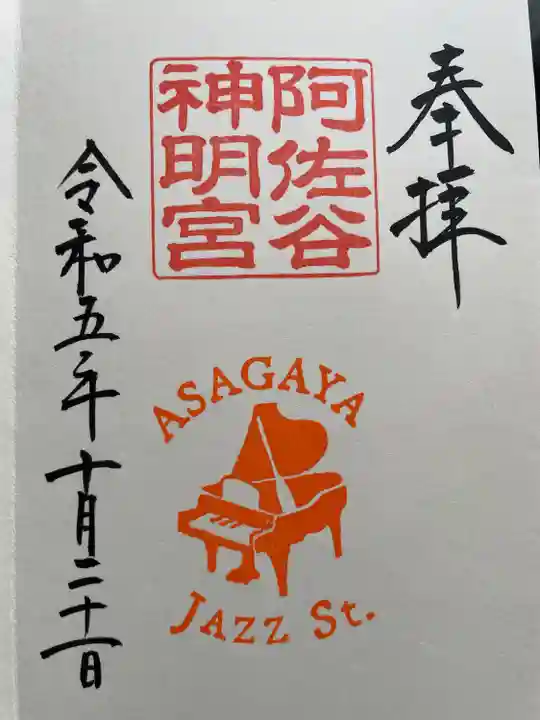 奉拝
阿佐谷
神明宮
ASAGAYA
JAZZ St.
令和五年十月二十一日